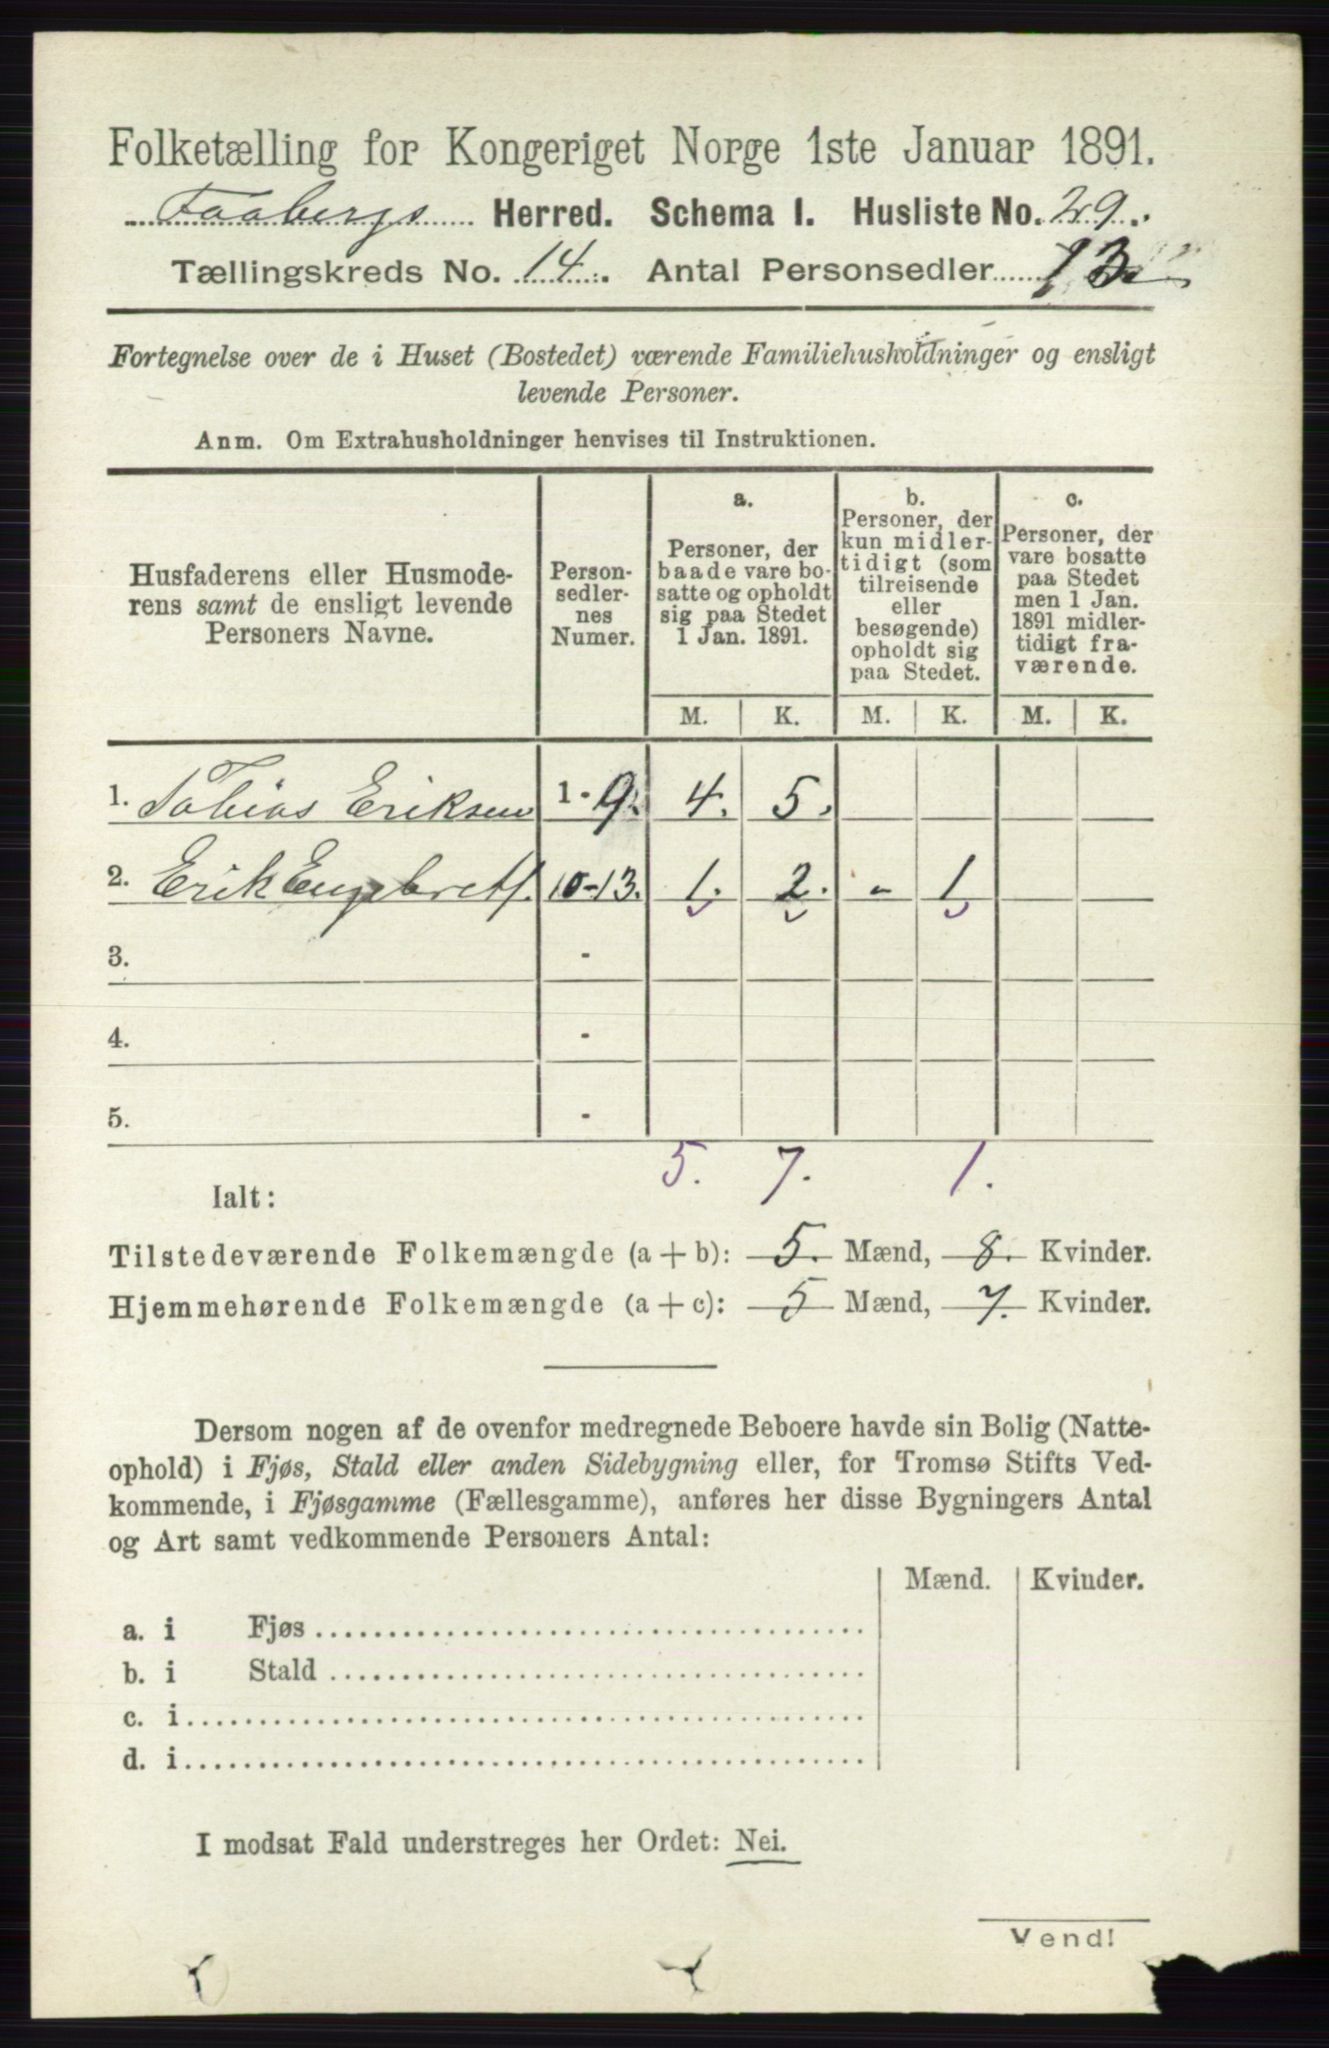 Folketælling for Kongeriget Norge 1ste Januar 1891.
Faabergs Herred. Schema I. Husliste No. 29.
Tællingskreds No. 14. Antal Personsedler 13.
Fortegnelse over de i Huset (Bostedet) værende Familiehusholdninger og ensligt
levende Personer.
Anm. Om Extrahusholdninger henvises til Instruktionen.
Husfaderens eller Husmode-
rens samt de ensligt levende
Personers Navne.
Person-
sedler-
nes
Numer.
a.
Personer, der
baade vare bo-
satte og opholdt
sig paa Stedet
1 Jan. 1891.
b.
Personer, der
kun midler-
tidigt (som
tilreisende
eller
besøgende)
opholdt sig
paa Stedet.
c.
Personer, der
vare bosatte
paa Stedet
men 1 Jan.
1891 midler-
tidigt fra-
værende.
M. K. M. K. M. K.
1. Tobias Eriksen 1-9. 4. 5.
2. Erik Engebrets. 10-13. 1. 2. - 1
3. -
4. -
5. -
5. 7. 1.
Ialt:
Tilstedeværende Folkemængde (a + b): 5. Mænd, 8. Kvinder.
Hjemmehørende Folkemængde (a + c): 5 Mænd, 7. Kvinder.
Dersom nogen af de ovenfor medregnede Beboere havde sin Bolig (Natte-
ophold) i Fjøs, Stald eller anden Sidebygning eller, for Tromsø Stifts Ved-
kommende, i Fjøsgamme (Fællesgamme), anføres her disse Bygningers Antal
og Art samt vedkommende Personers Antal:
Mænd. Kvinder.
a. i Fjøs
b. i Stald
c. i
d. i
I modsat Fald understreges her Ordet: Nei.
Vend!